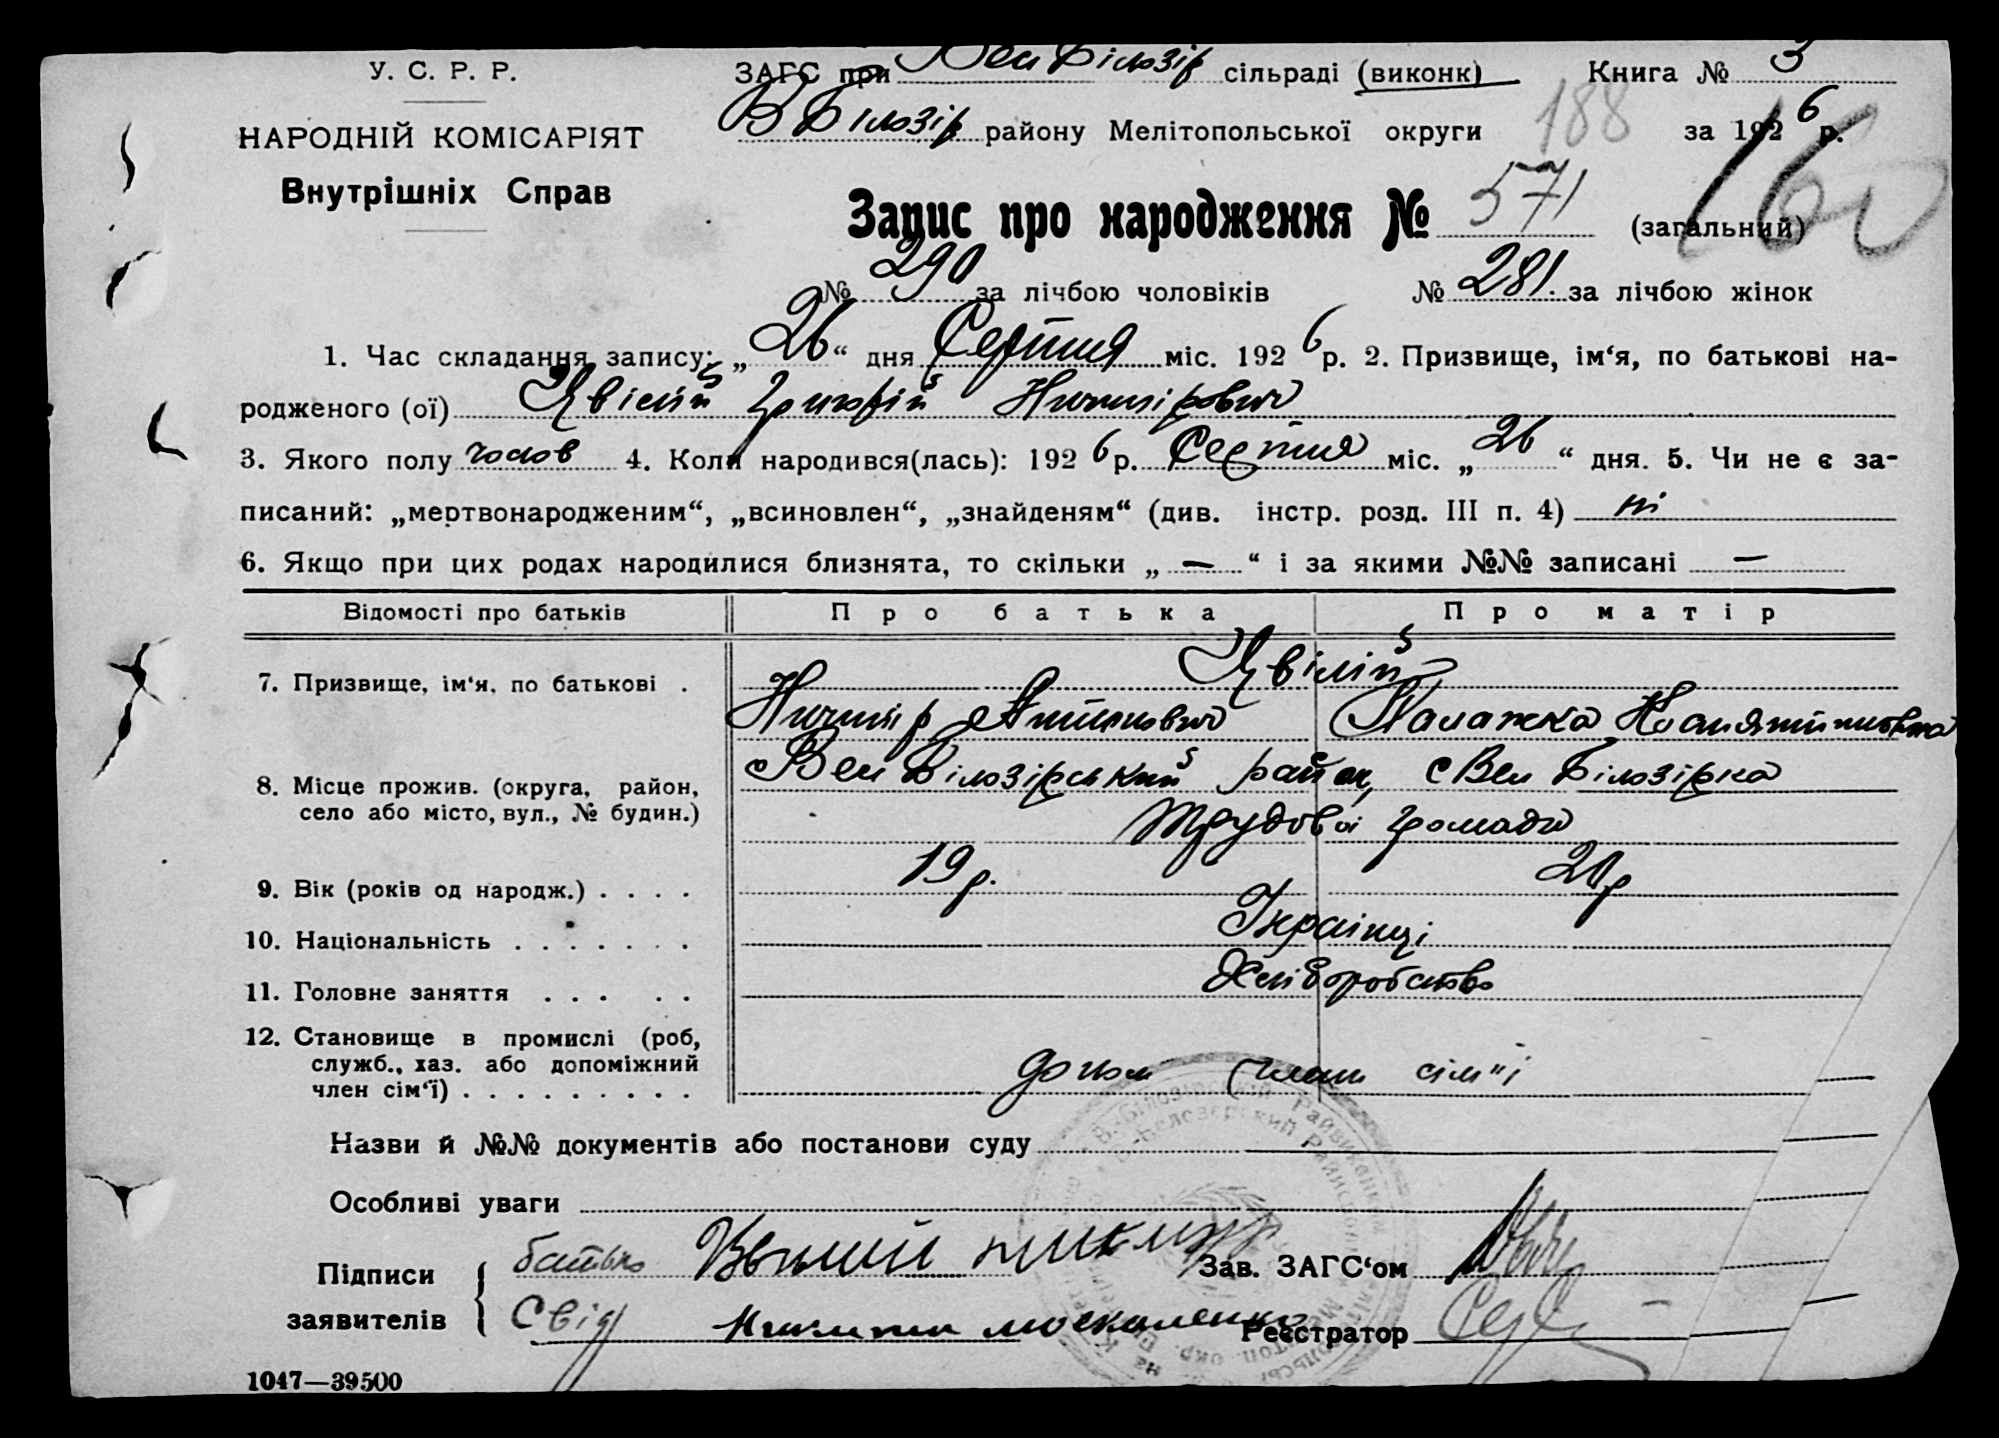 У. С. Р. Р.
НАРОДНІЙ КОМІСАРІЯТ
Внутрішніх Справ
ЗАГС при Вел Білозір сільраді (виконк) Книга № 3
В Білозір району Мелітопольської округи 188 за 1926 р.
160
Запис про народження № 571 (загальний)
№ 290 за лічбою чоловіків № 281 за лічбою жінок
1. Час складання запису: „26“ дня Серпня міс. 1926 р. 2. Призвище, ім‘я, по батькові на-
родженого (ої) Цвілій Григорій Ничипірович
3. Якого полу чолов 4. Коли народився(лась): 1926 р. Серпня міс. „26“ дня. 5. Чи не є за-
писаний: „мертвонародженим“, „всиновлен“, „знайденям“ (див. інстр. розд. III п. 4) ні
6. Якщо при цих родах народилися близнята, то скільки „—“ і за якими №№ записані —
Відомості про батьків Про батька Про матір
7. Призвище, ім‘я, по батькові . Цвілій
Ничипір Антонович Палажка Костянтиновна
8. Місце прожив. (округа, район, село або місто, вул., № будин.) Вел Білозірський район, с Вел Білозірка
Трудової громади
9. Вік (років од народж.) . . . . 19 р. 20 р
10. Національність . . . . . . . Українці
11. Головне заняття . . . . . Хліборобство
12. Становище в промислі (роб,
служб., хаз. або допоміжний
член сім‘ї) . . . . . . . . . допом член сім"ї
Назви й №№ документів або постанови суду
Особливі уваги
Підписи заявителів { батько Цвілий Зав. ЗАГС‘ом
Свід Никита Москаленко Реєстратор
1047—39500